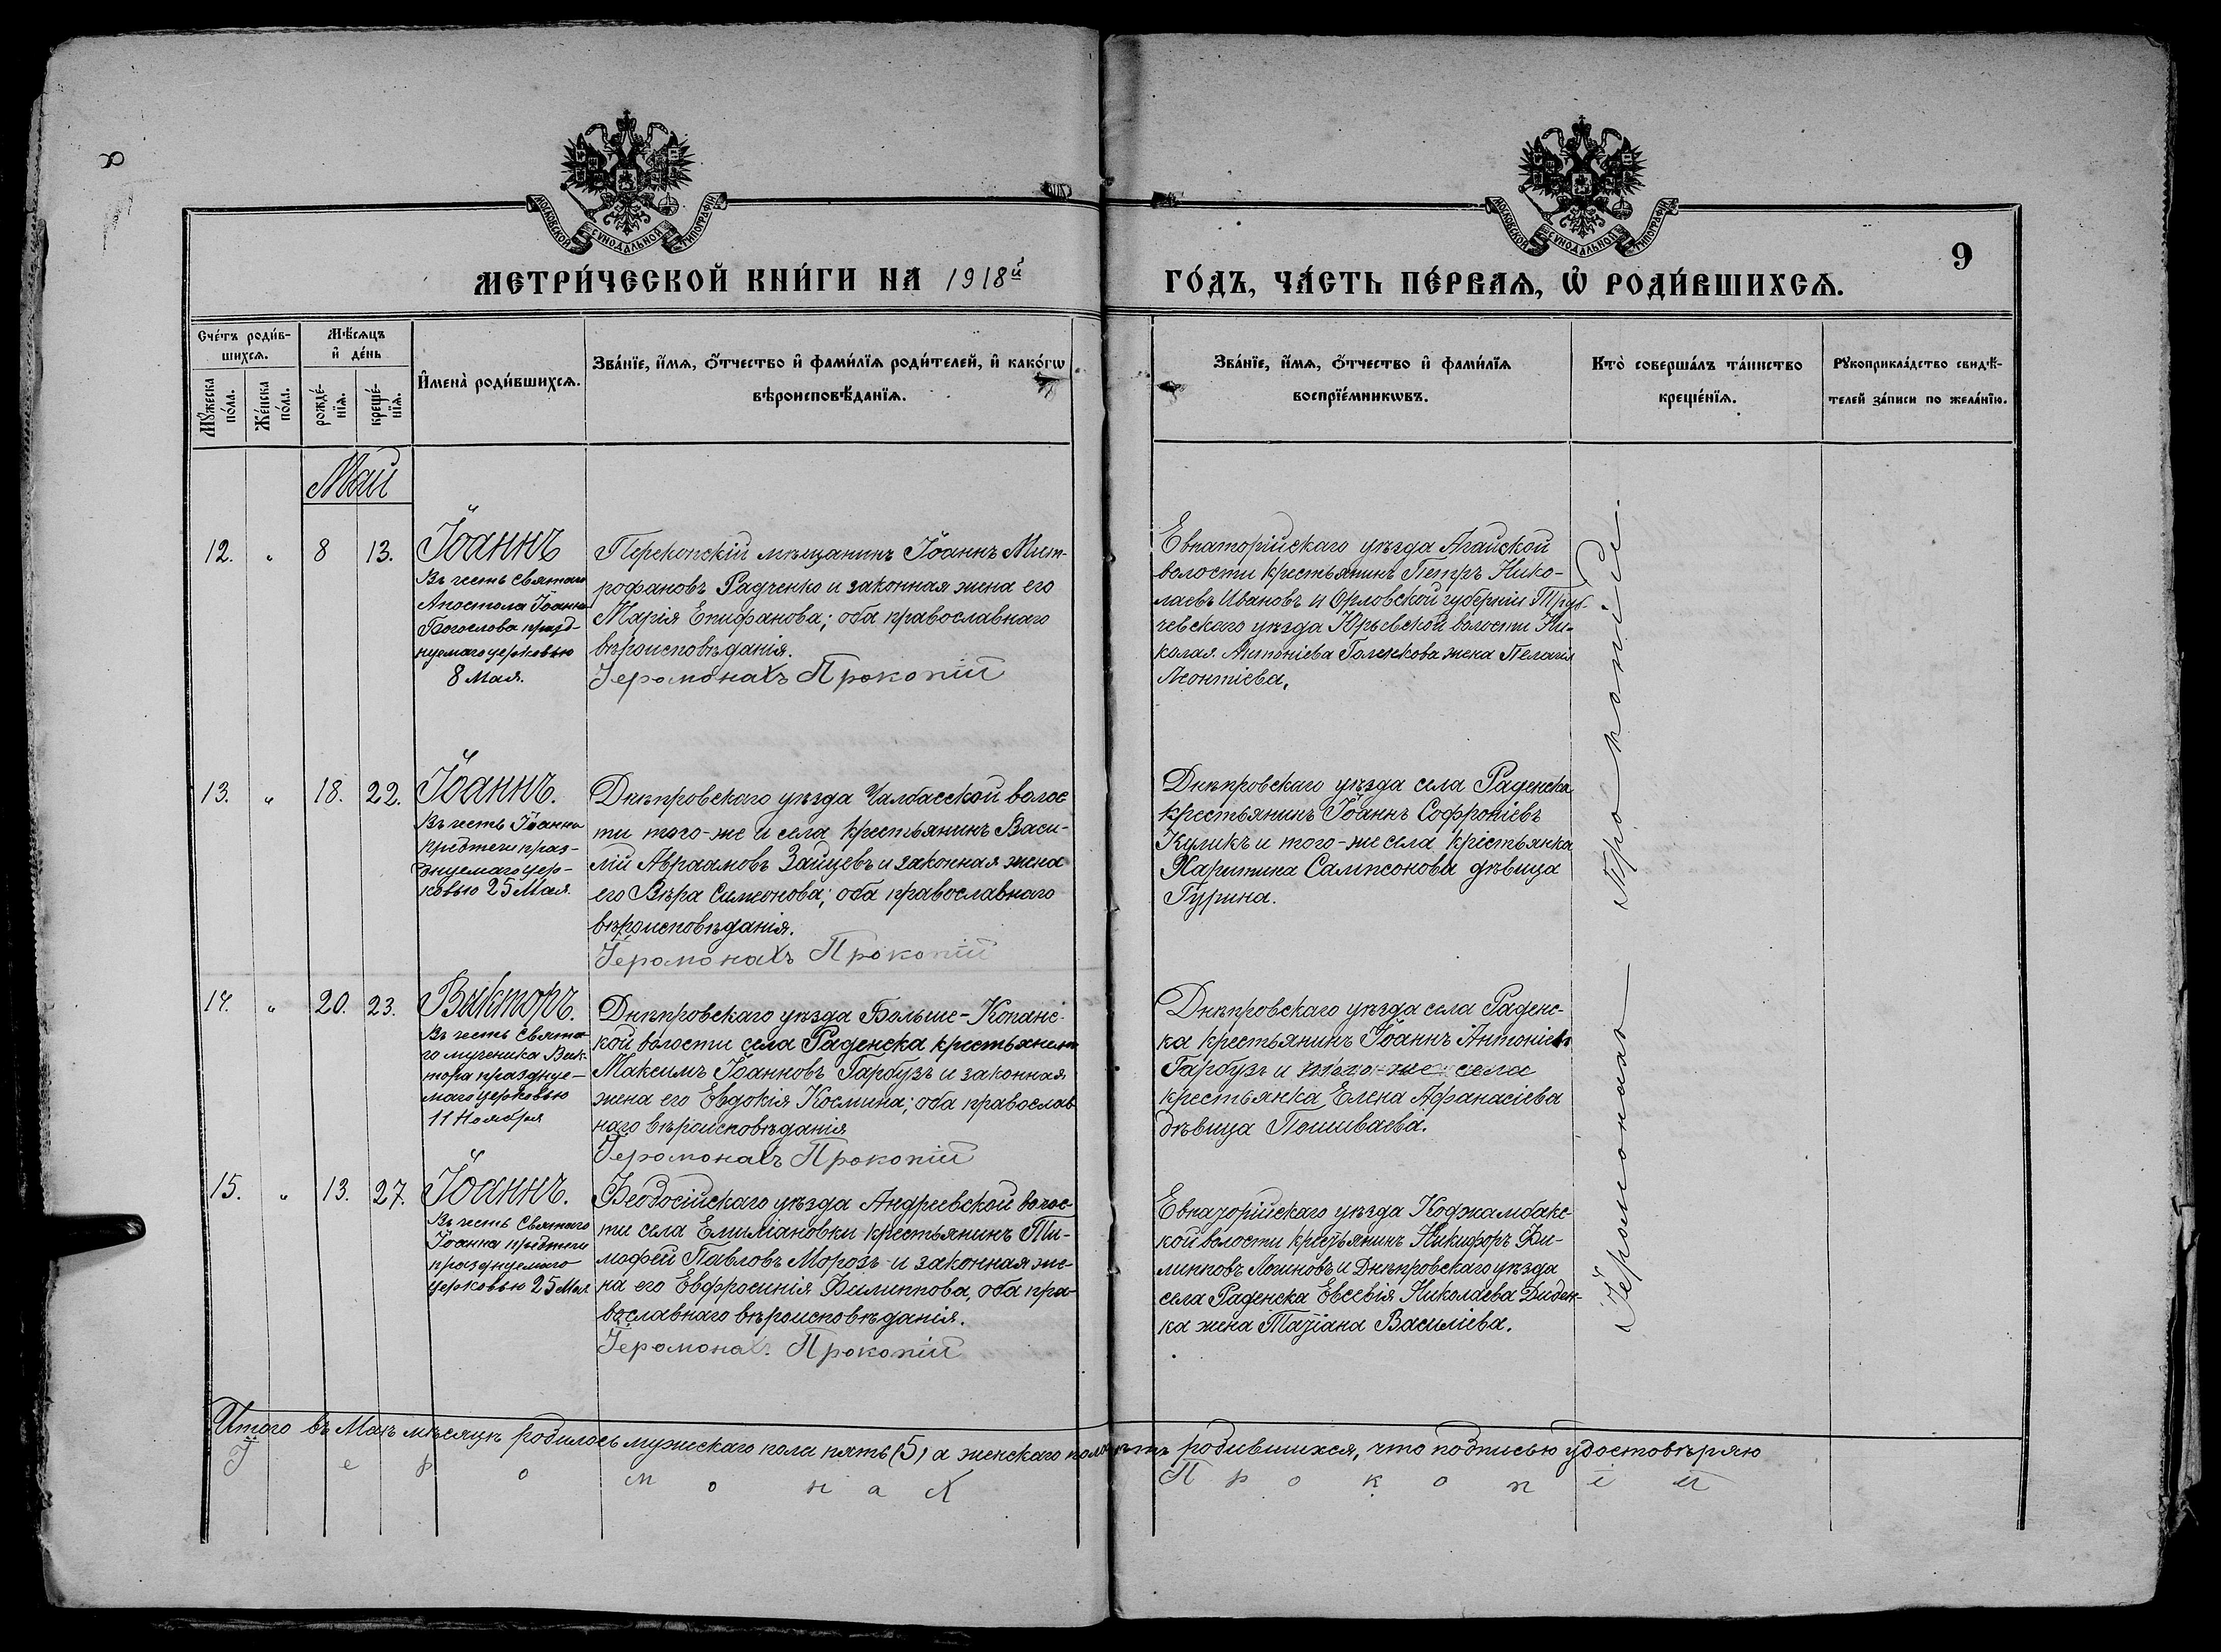 8
МОСКОВСКОЙ СѴНОДАЛЬНОЙ ТИПОГРАФІИ
МОСКОВСКОЙ СѴНОДАЛЬНОЙ ТИПОГРАФІИ
9
МЕТРИ́ЧЕСКОЙ КНИ́ГИ НА 1918й
ГО́ДЪ, ЧА́СТЬ ПЕ́РВАѦ, Ѽ РОДИ́ВШИХСѦ.
Сче́тъ роди́в-
шихсѧ.
Мꙋ́жеска по́ла.
Же́нска по́ла.
Мѣ́сѧцъ
и҆ де́нь
рожде́-
нїѧ.
креще́-
нїѧ.
И҆мена̀ роди́вшихсѧ.
Зва́нїе, и҆́мѧ, ѻ҆́тчество и҆ фами́лїѧ роди́телей, и҆ како́гѡ
вѣроисповѣ́данїѧ.
Зва́нїе, и҆́мѧ, ѻ҆́тчество и҆ фами́лїѧ
воспрїе́мникѡвъ.
Кто̀ соверша́лъ та́инство
креще́нїѧ.
Рꙋкоприкла́дство свидѣ́-
телей за́писи по жела́нїю.
Май
12. " 8 13.
Іоаннъ
Въ честь Святаго
Апостола Іоанна
Богослова празд-
нуемаго церковью
8 Мая.
Перекопскій мѣщанинъ Іоаннъ Мит-
рофановъ Радченко и законная жена его
Марія Епифанова; оба православнаго
вѣроисповѣданія.
Іеромонахъ Прокопій
Евпаторійскаго уѣзда Агайской
волости крестьянинъ Петръ Нико-
лаевъ Ивановъ и Орловской губерніи Труб-
чевскаго уѣзда Юрьевской волости Ни-
колая Антоніева Голенкова жена Пелагія
Леонтіева,
13. " 18. 22.
Іоаннъ.
Въ честь Іоанна
Предтечи праз-
днуемаго цер-
ковью 25 Мая.
Днѣпровскаго уѣзда Чалбасской волос
ти того-же и села крестьянинъ Васи-
лій Авраамовъ Зайцевъ и законная жена
его Вѣра Симеонова; оба православнаго
вѣроисповѣданія.
Іеромонахъ Прокопій
Днѣпровскаго уѣзда села Раденска
крестьянинъ Іоаннъ Софроніевъ
Куликъ и того-же села крестьянка
Харитина Сампсонова дѣвица
Гурина.
14. " 20. 23.
Викторъ.
Въ честь Свята-
го мученика Вик-
тора празднуе-
маго церковью
11 Ноября
Днѣпровскаго уѣзда Больше-Копанс-
кой волости села Раденска крестьянинъ
Максимъ Іоанновъ Гарбузъ и законная
жена его Евдокія Космина; оба православ
наго вѣроисповѣданія
Іеромонахъ Прокопій
Днѣпровскаго уѣзда села Раденс-
ка крестьянинъ Іоаннъ Антоніевъ
Гарбузъ и того-же села
крестьянка Елена Афанасіева
дѣвица Пошиваева.
15. " 13. 27.
Іоаннъ.
Въ честь Святаго
Іоанна предтечи
празднуемаго
церковью 25 Мая
Феодосійскаго уѣзда Андреевской волос-
ти села Емиліановки крестьянинъ Ти-
мофей Павловъ Морозъ и законная же-
на его Евфросинія Филиппова, оба пра-
вославнаго вѣроисповѣданія.
Іеромонахъ Прокопій
Евпаторійскаго уѣзда Коджамбакс-
кой волости крестьянинъ Никифоръ Фи-
липповъ Логиновъ и Днѣпровскаго уѣзда
села Раденска Евсевія Николаева Диден-
ка жена Татіана Василіева.
Іеромонахъ Прокопій.
Итого въ Маѣ мѣсяцѣ родилось мужескаго пола пять (5) а женскаго пола нѣтъ родившихся, что подписью удостовѣряю
Іеромонах Прокопій